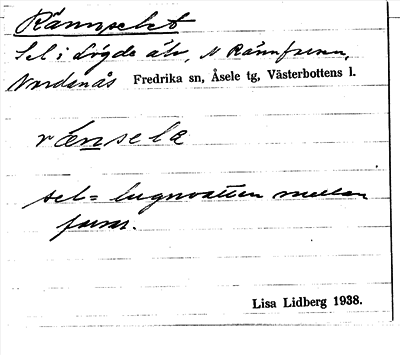 Rännselet
Sel i Lögde älv, N Rännforsen,
Nordanås Fredrika sn, Åsele tg, Västerbottens l.
rænsela
sel = lugnvatten mellan
forsar.
Lisa Lidberg 1938.